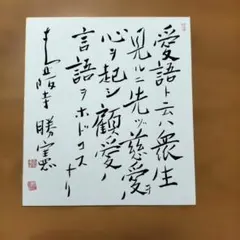 愛語ト云ハ衆生
見ルニ先ヅ慈愛ヲ
心ヲ起シ顧愛ノ
言語ヲホドコスナリ
勝憲